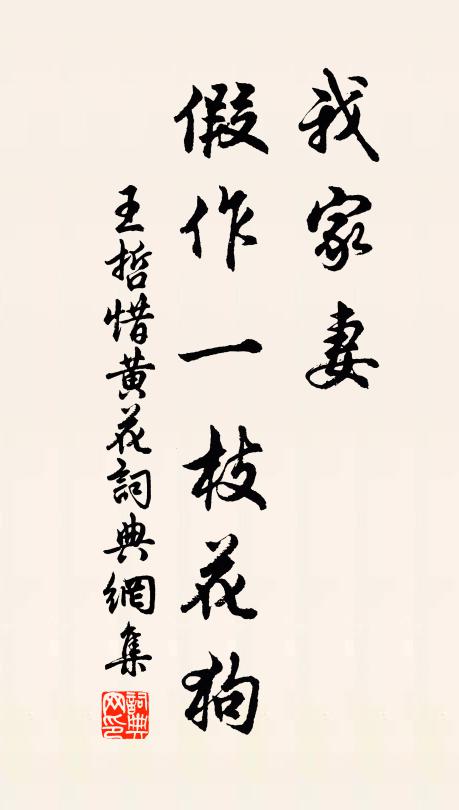 我家妻
假作一枝花狗
王哲惜黄花詞典網集
詞典網印